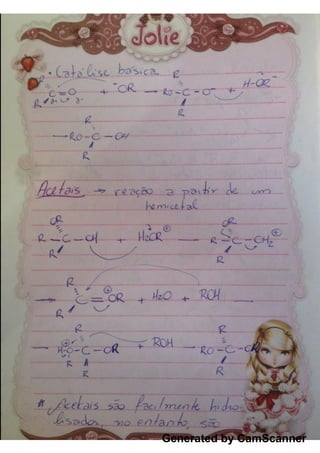 Jolie
• Catálise básica
R R H-OR
C=O + ⁻OR → RO-C-O⁻ +
R R
R
→ RO-C-OH
R
Acetais → reação a partir de um
hemicetal
OR OR
R-C-OH + H₂OR⊕ → R-C-OH₂⊕
R R
R
→ C=OR⊕ + H₂O + ROH →
R
R R
→ H-O-C-OR + ROH → RO-C-OR
R R R
* Acetais são facilmente hidro
lisados, no entanto, são
Generated by CamScanner